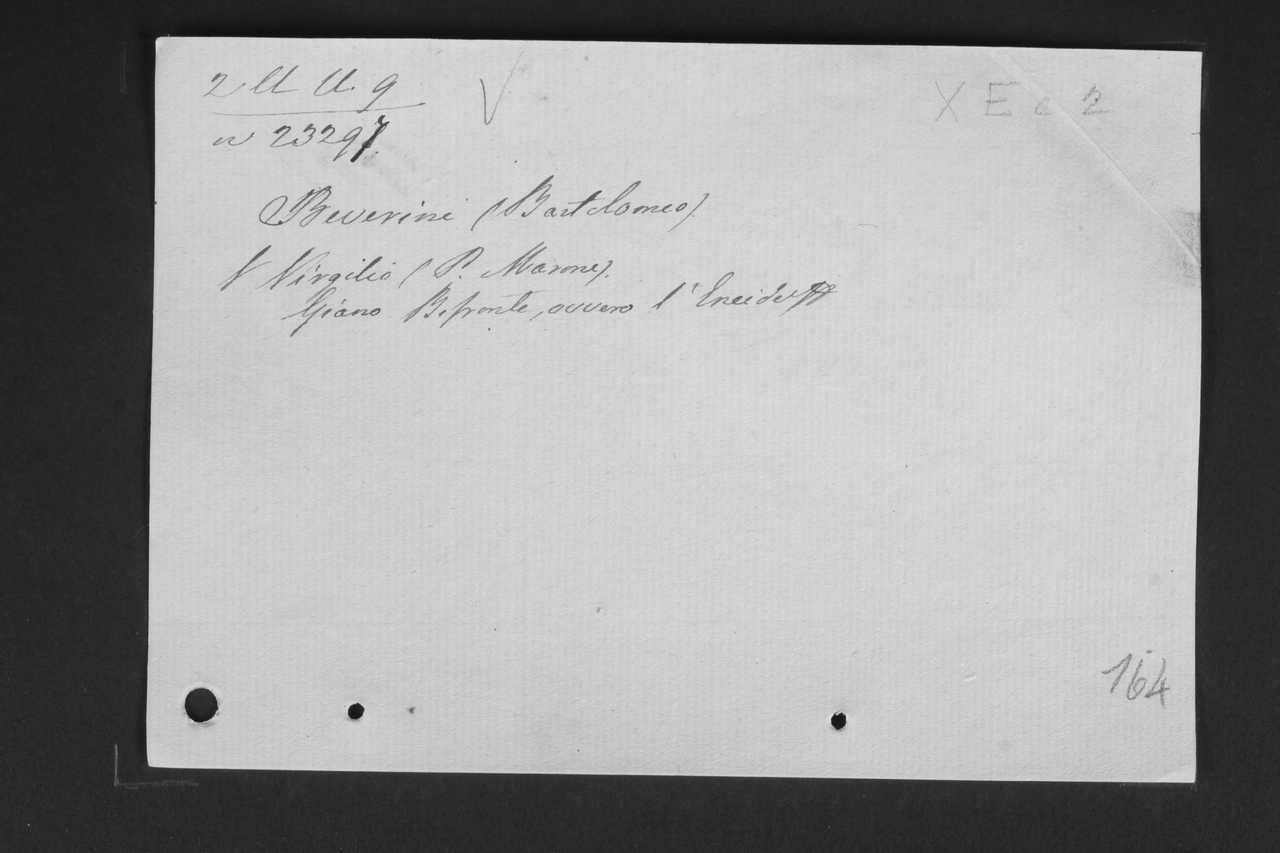 2 U U. 9
n 23297
X E c 2
Beverini (Bartolomeo)
V Virgilio (P. Marone).
Giano Bifronte, ovvero l'Eneide
164